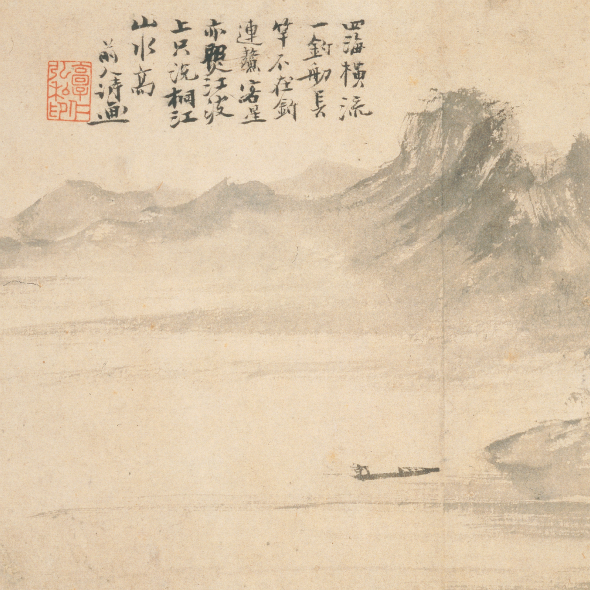 四海橫流
一釣舠長
竿不在釣
連鰲客星
亦照江波
上只說桐江
山水高
前人詩画